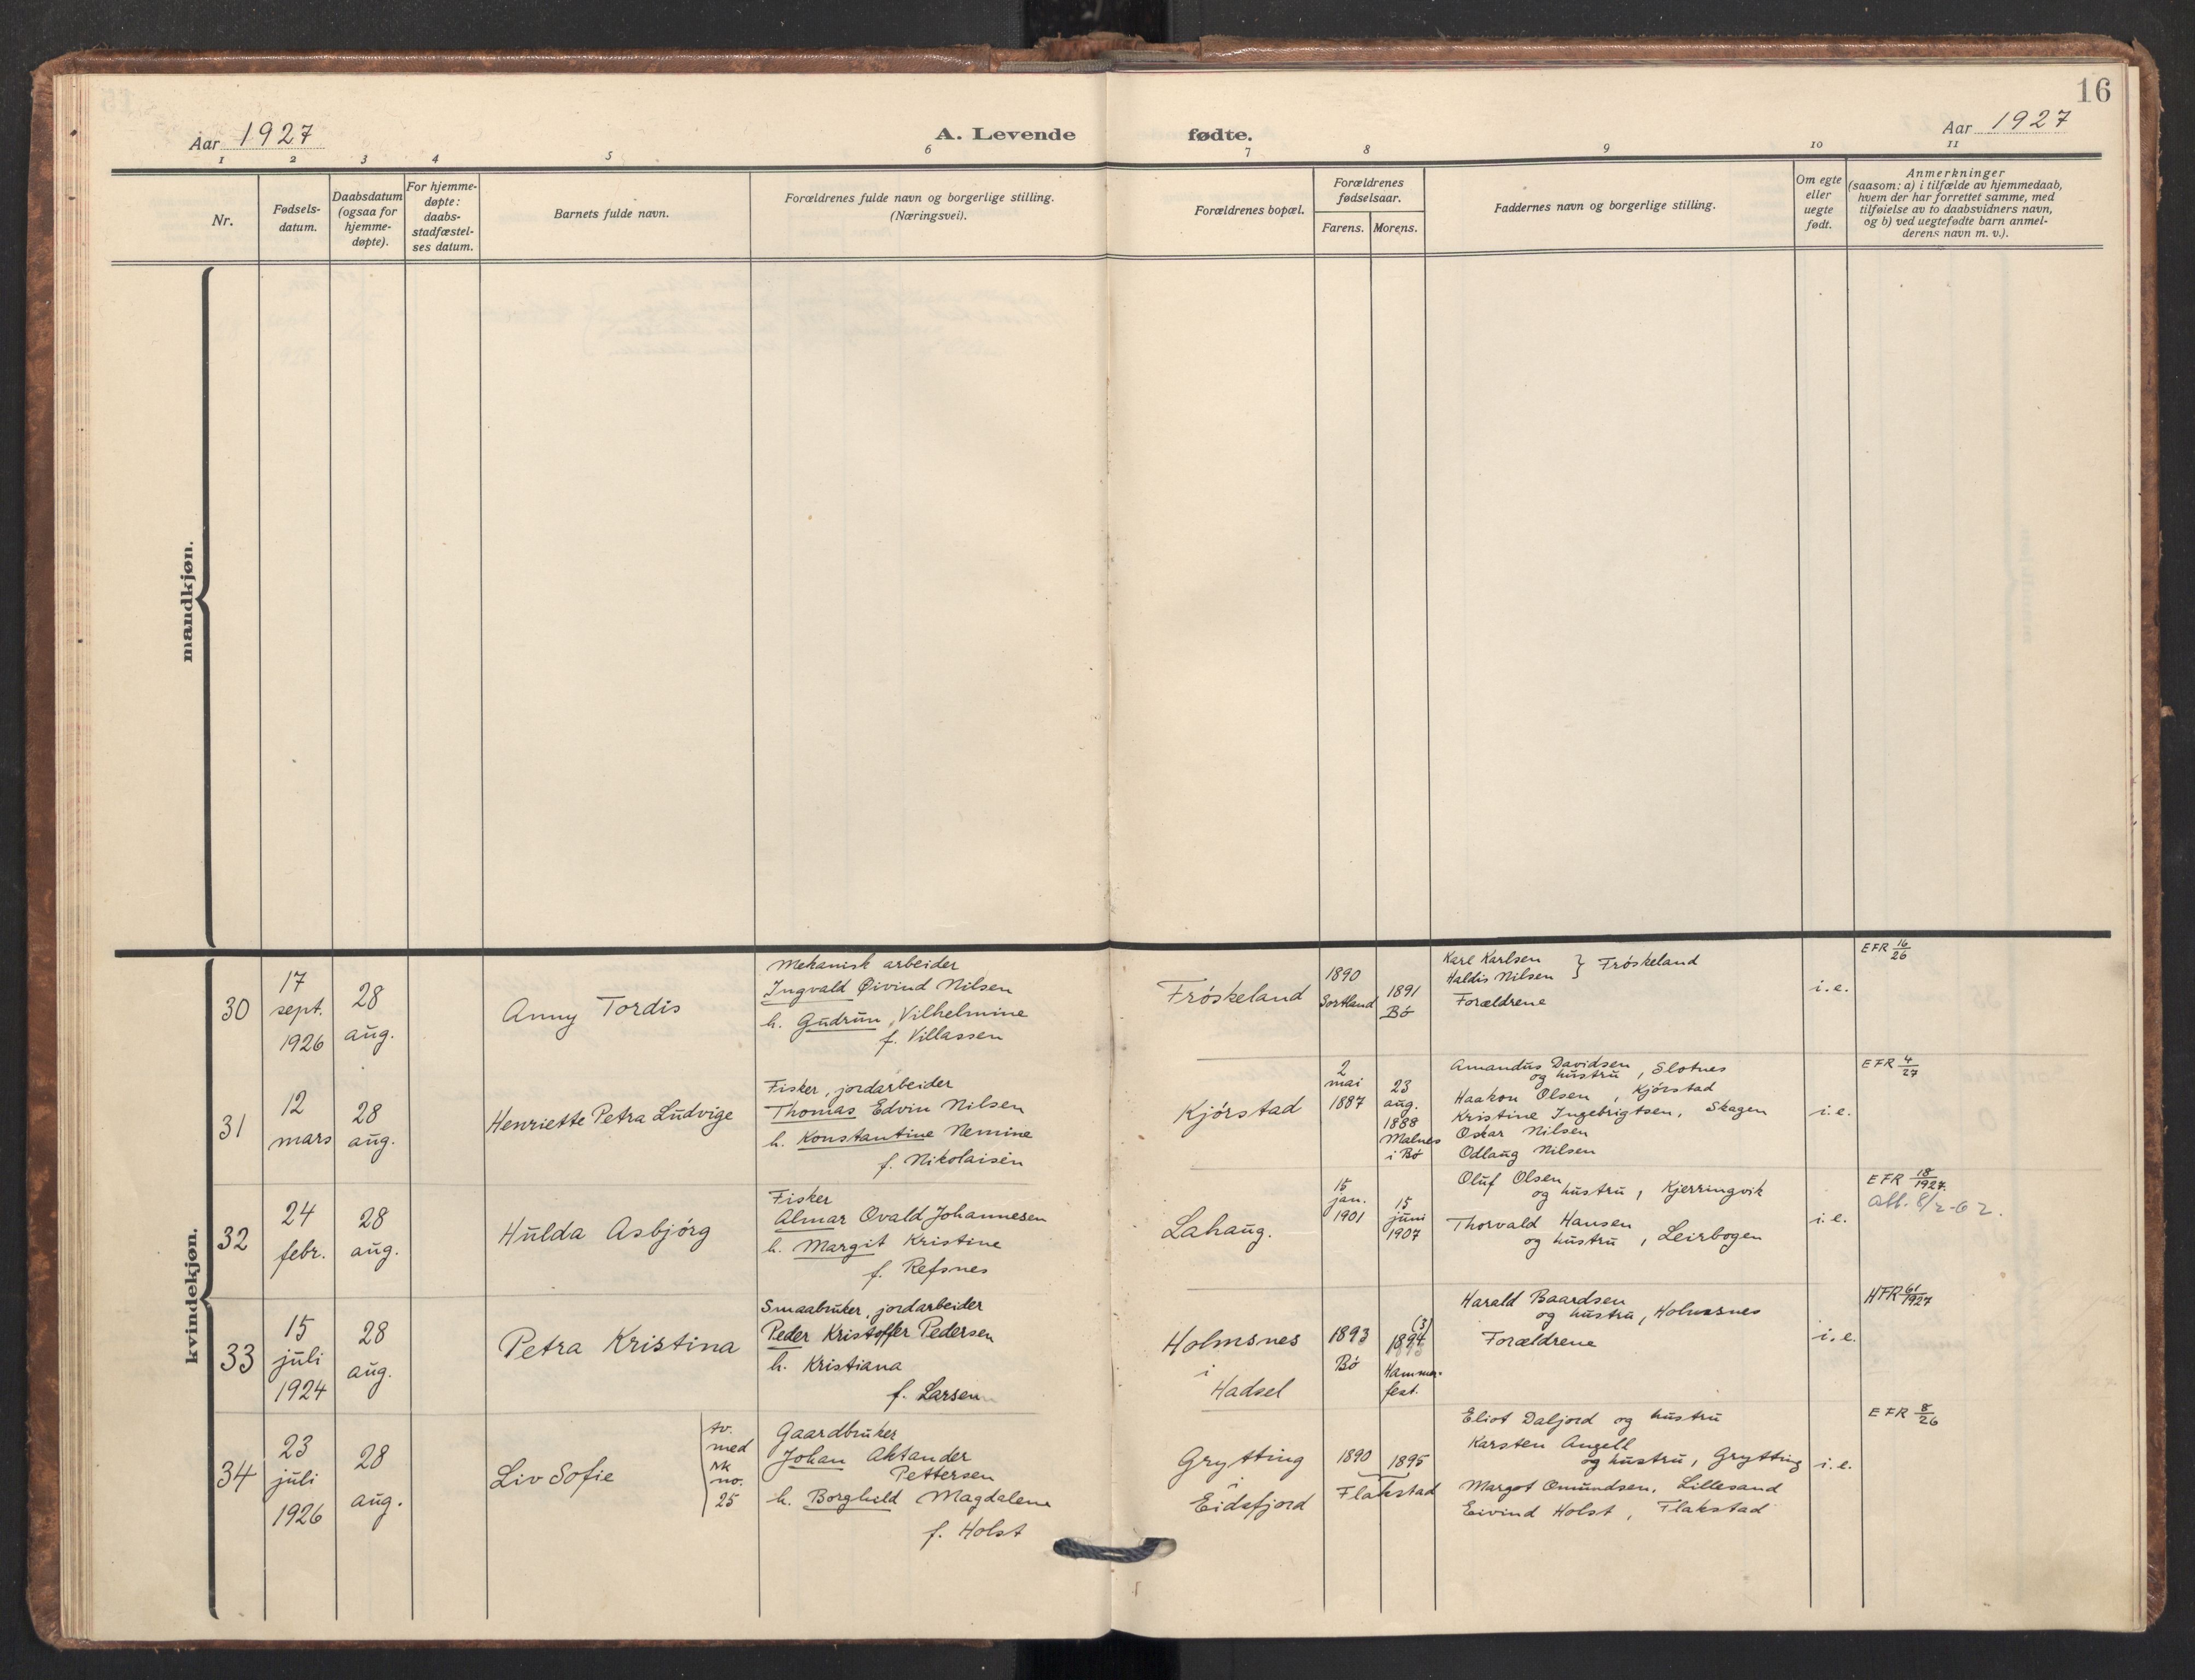 16
Aar 1927
A. Levende fødte.
Aar 1927
1 2 3 4 5 6 7 8 9 10 11
Nr.
Fødsels-
datum.
Daabsdatum
(ogsaa for
hjemme-
døpte).
For hjemme-
døpte:
daabs-
stadfæstel-
ses datum.
Barnets fulde navn.
Forældrenes fulde navn og borgerlige stilling.
(Næringsvei).
Forældrenes bopæl.
Forældrenes
fødselsaar.
Farens. Morens.
Faddernes navn og borgerlige stilling.
Om egte
eller
uegte
født.
Anmerkninger
(saasom: a) i tilfælde av hjemmedaab,
hvem der har forrettet samme, med
tilføielse av to daabsvidners navn,
og b) ved uegtefødte barn anmel-
derens navn m. v.).
mandkjøn.
kvindekjøn.
30
17
sept.
1926
28
aug.
Anny Tordis
Mekanisk arbeider
Ingvald Øivind Nilsen
h. Gudrun Vilhelmine
f. Villassen
Frøskeland
1890
Sortland
1891
Bø
Karl Karlsen
Haldis Nilsen } Frøskeland
Forældrene
i.e.
EFR 16/26
31
12
mars
28
aug.
Henriette Petra Ludvige
Fisker, jordarbeider
Thomas Edvin Nilsen
h. Konstantine Nemine
f. Nikolaisen
Kjørstad
2
mai
1887
23
aug.
1888
Malnes
i Bø
Amandus Davidsen
og hustru, Slotnes
Haakon Olsen, Kjørstad
Kristine Ingebrigtsen, Skagen
Oskar Nilsen
Odlaug Nilsen
i.e.
EFR 4/27
32
24
febr.
28
aug.
Hulda Asbjørg
Fisker
Almar Ovald Johannesen
h. Margit Kristine
f. Refsnes
Lahaug.
15
jan.
1901
15
juni
1907
Oluf Olsen
og hustru, Kjerringvik
Thorvald Hansen
og hustru, Leirbogen
i.e.
EFR 18/1927.
att. 8/2-62.
33
15
juli
1924
28
aug.
Petra Kristina
Smaabruker, jordarbeider
Peder Kristoffer Pedersen
h. Kristiana
f. Larsen
Holmsnes
i
Hadsel
1893
Bø
(3)
1894
Hammer-
fest.
Harald Baardsen
og hustru, Holmsnes
Forældrene
i.e.
HFR 61/1927
34
23
juli
1926
28
aug.
Liv Sofie
tv.
med
mk
no.
25
Gaardbruker
Johan Aktander
Pettersen
h. Borghild Magdalene
f. Holst
Grytting
i
Eidsfjord
1890 1895
Flakstad
Eliot Daljord og hustru
Karsten Angell
og hustru, Grytting
Margot Omundsen, Lillesand
Eivind Holst, Flakstad
i.e.
EFR 8/26